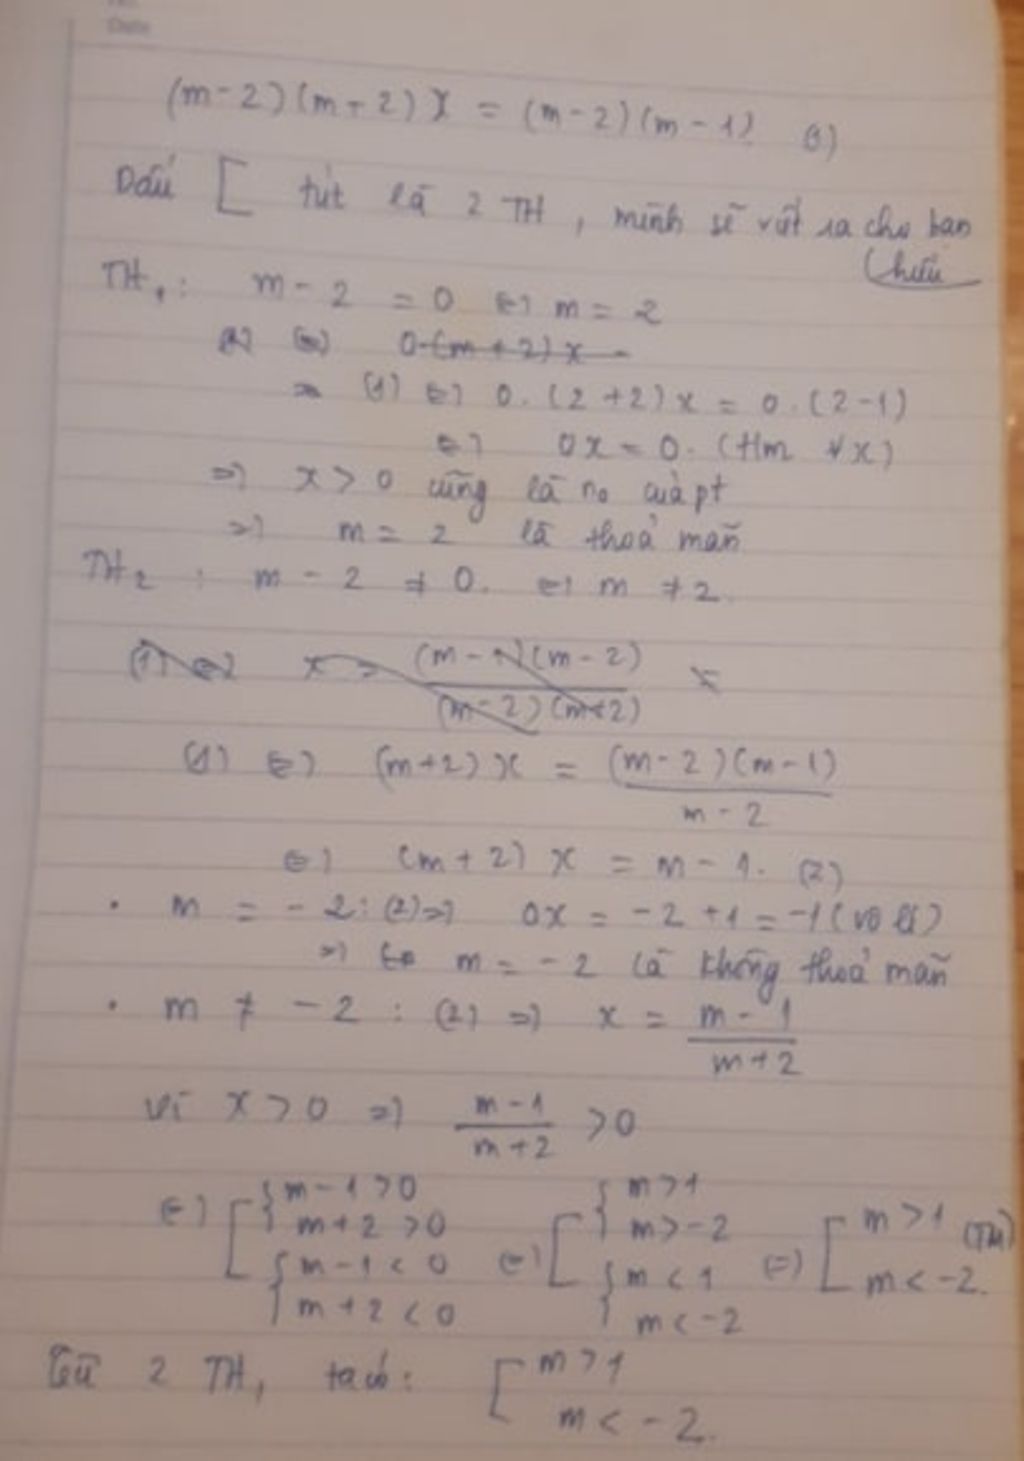 Date
(m-2)(m+2)x = (m-2)(m-1) (1)
Dấu [ tức là 2 TH, mình sẽ viết ra cho bạn
hiểu
TH1: m - 2 = 0 ⇔ m = 2
⇔ 0.(m+2)x =
⇒ (1) ⇔ 0.(2+2)x = 0.(2-1)
⇔ 0x = 0. (tm ∀x)
⇒ x > 0 cũng là no của pt
⇒ m = 2 là thoả mãn
TH2: m - 2 ≠ 0. ⇔ m ≠ 2.
(1) ⇔ x = \frac{(m-1)(m-2)}{(m-2)(m+2)}
(1) ⇔ (m+2)x = \frac{(m-2)(m-1)}{m-2}
⇔ (m+2)x = m - 1. (2)
• m = -2: (2) ⇒ 0x = -2 + 1 = -1 (vô lí)
⇒ m = -2 là không thoả mãn
• m ≠ -2: (2) ⇒ x = \frac{m-1}{m+2}
Vì x > 0 ⇒ \frac{m-1}{m+2} > 0
⇔ [ { m-1 > 0 [ { m > 1
{ m+2 > 0 { m > -2 [ m > 1 (TM)
{ m-1 < 0 ⇔ { m < 1 ⇔ [ m < -2.
{ m+2 < 0 { m < -2
Từ 2 TH, ta có: [ m > 1
m < -2.